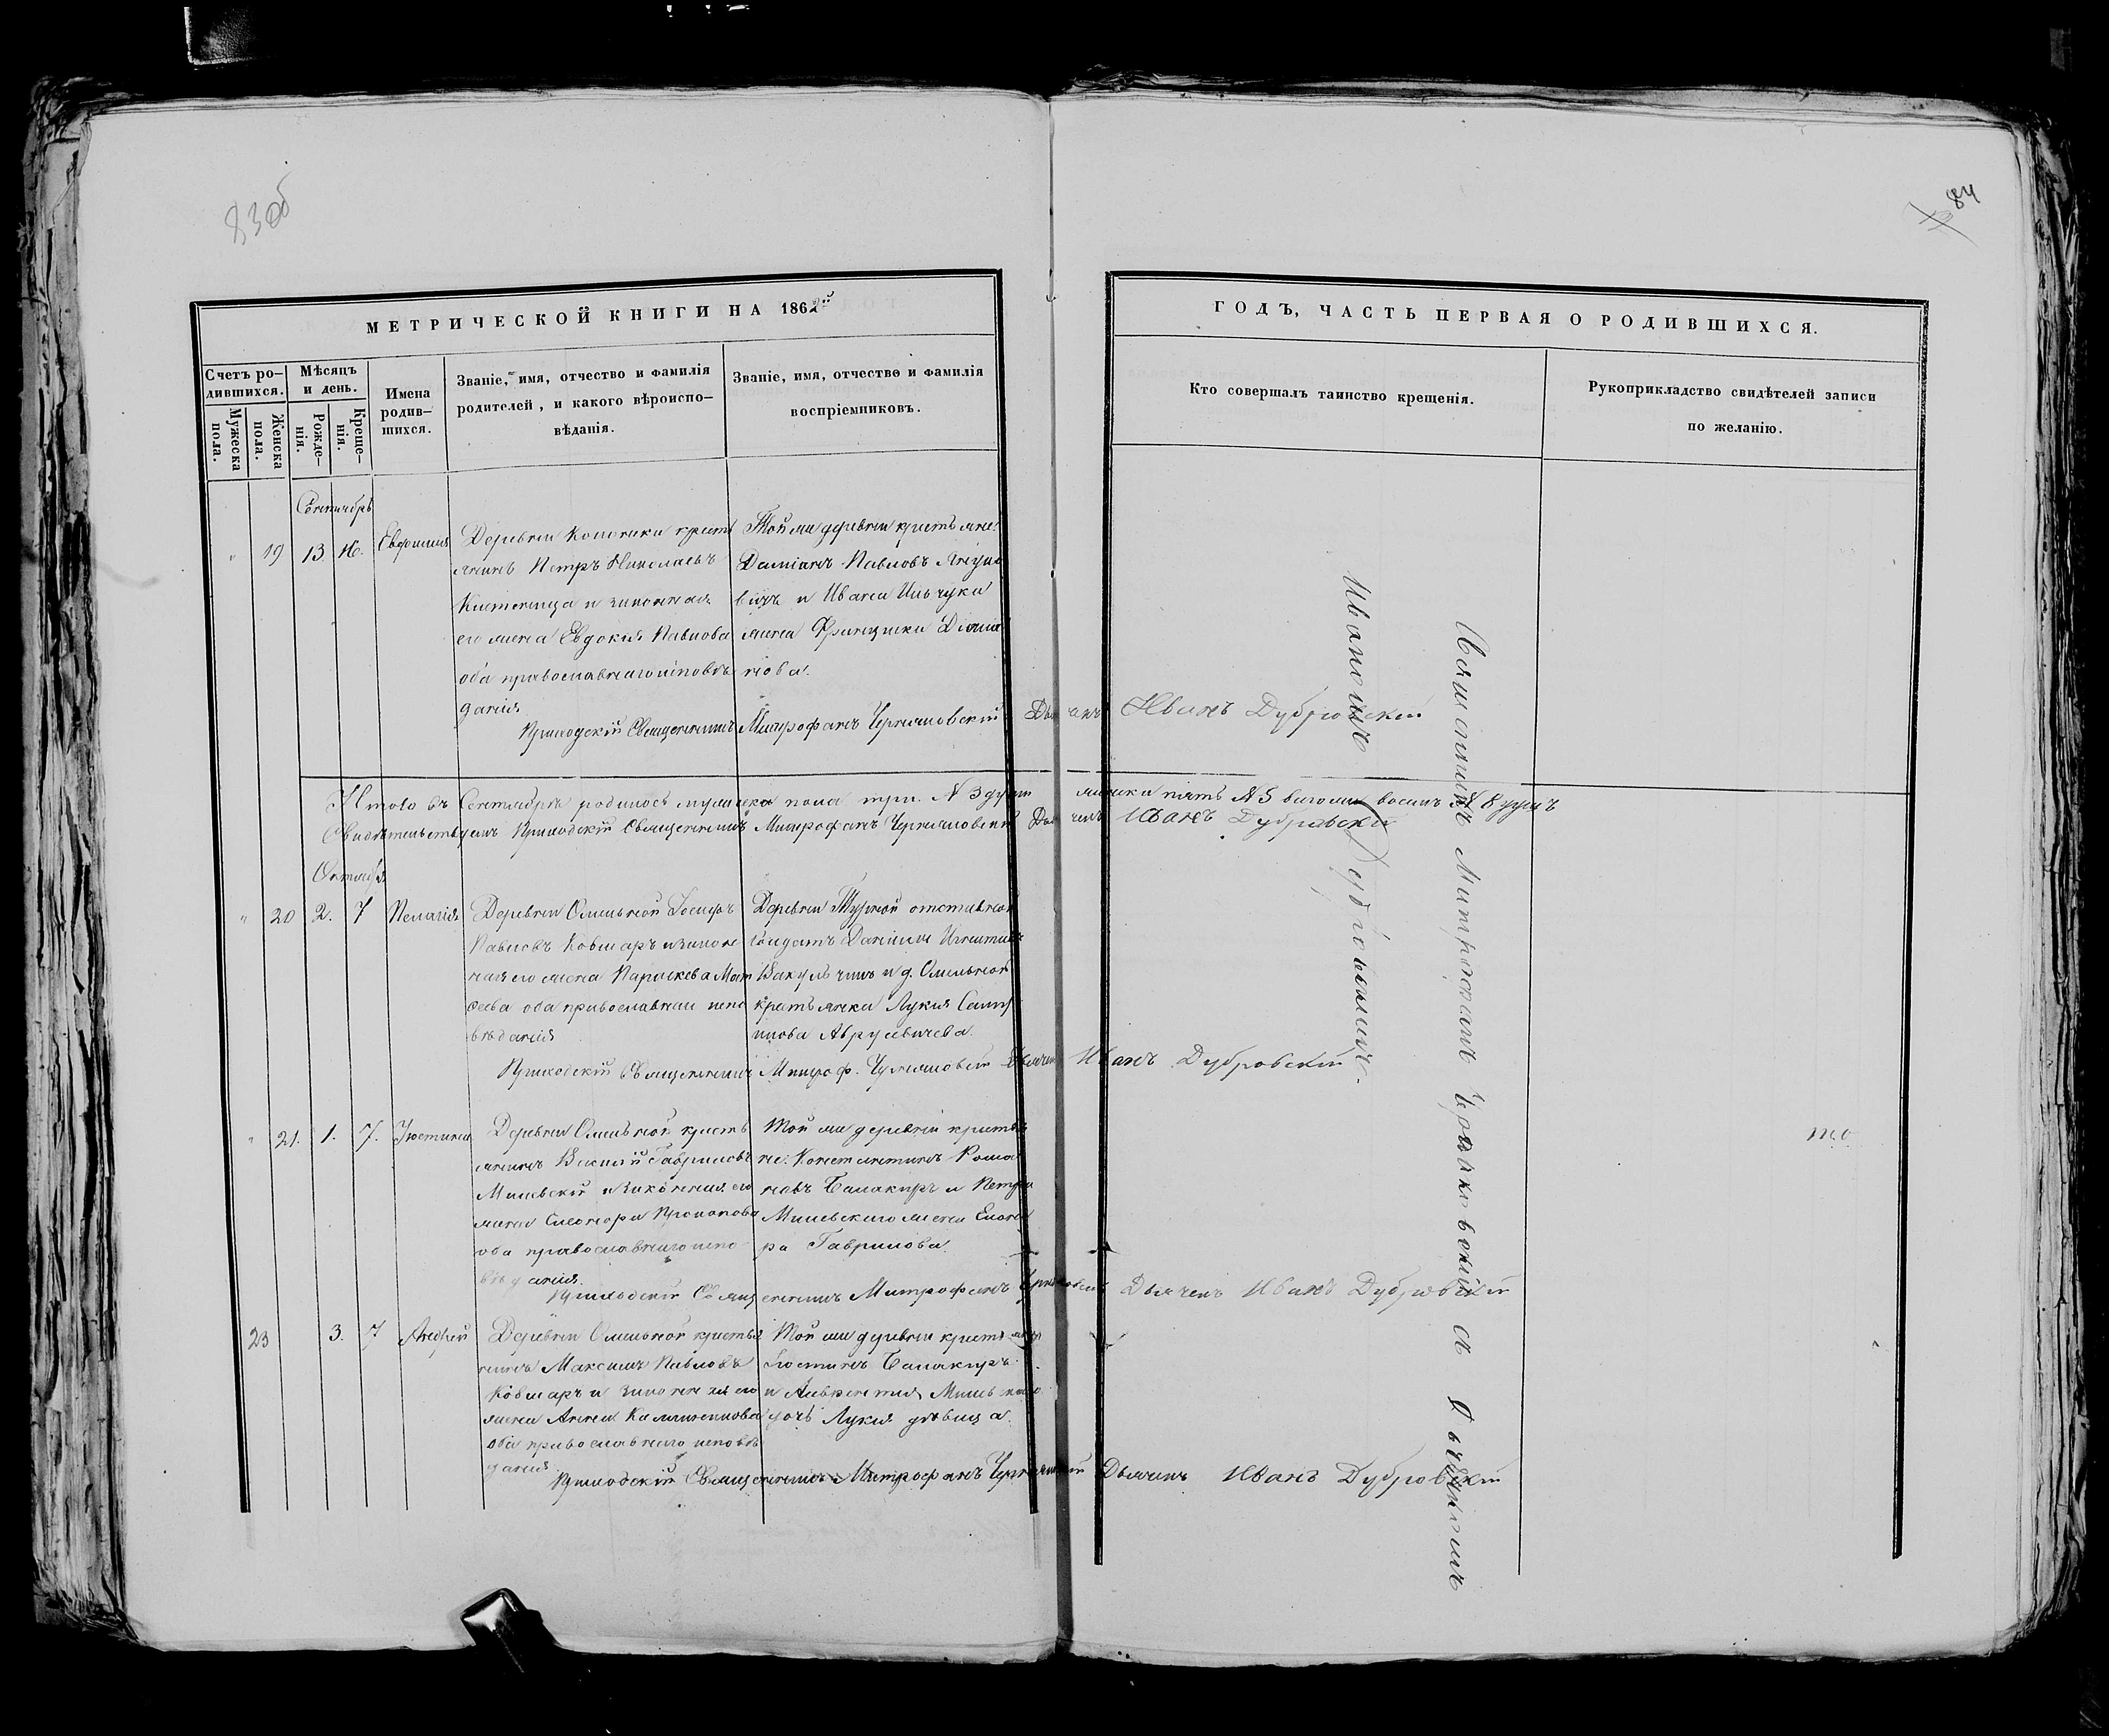 83 об
84
МЕТРИЧЕСКОЙ КНИГИ НА 1862й
ГОДЪ, ЧАСТЬ ПЕРВАЯ О РОДИВШИХСЯ.
Счетъ ро-
дившихся.
Мужеска
пола.
Женска
пола.
Мѣсяцъ
и день.
Рожде-
нія.
Креще-
нія.
Имена
родив-
шихся.
Званіе, имя, отчество и фамилія
родителей, и какого вѣроиспо-
вѣданія.
Званіе, имя, отчество и фамилія
воспріемниковъ.
Кто совершалъ таинство крещенія.
Рукоприкладство свидѣтелей записи
по желанію.
Сентябрь
" 19 13 16. Евфимія
Деревни кресть
янинъ Петръ Николаевъ
и законная
его жена Евдокія Павлова
оба православнаго исповѣ
данія
Той же деревни крестьяне:
Даміанъ Павловъ
вичъ и Ивана Ильчука
жена Францишка Даміа
нова.
Приходскій Священникъ Митрофанъ Черняковскій Дьячекъ Иванъ Дубровскій
Итого въ Сентябрѣ родилось мужеска пола три. N 3 душ женска пять N 5 восемь N 8 душъ
Свидѣтельствуемъ Приходскій Священникъ Митрофанъ Черняковскій Дьячекъ Иванъ Дубровскій
Октябрь
" 20 2. 7 Пелагія
Деревни Омельной Іосифъ
Павловъ Ковшаръ и закон
ная его жена Параскева Мат
ѳеева оба православнаи испо
вѣданія
Деревни Турной отставной
солдатъ Даніилъ Игнатіевъ
Вакульчикъ и д. Омельной
крестьянка Лукія Само
йлова
Приходскій Священникъ Митроф. Черняковскій Дьячекъ Иванъ Дубровскій
" 21. 1. 7. Іустина
Деревни Омельной кресть
янинъ Василій Гавриловъ
Милевскій и законная его
жена Елеонора Прокопова
оба православнаго испо
вѣданія.
Той же деревни крестья
не: Константинъ Рома
новъ Балакиръ и Петра
Милевскаго жена Елеоно
ра Гаврилова
Приходскій Священникъ Митрофанъ Черняковскій Дьячекъ Иванъ Дубровскій
23 3. 7 Андрей
Деревни Омельной крестья
нинъ Максимъ Павловъ
Ковшаръ и законная его
жена Анна
оба православнаго исповѣ
данія
Той же деревни крестьяне
Іустинъ Балакиръ
и Лаврентія Милевскаго
дочь Лукія дѣвица.
Приходскій Священникъ Митрофанъ Черняковскій Дьячекъ Иванъ Дубровскій
Священникъ Митрофанъ Черняковскій съ Дьячкомъ
Иваномъ Дубровскимъ.